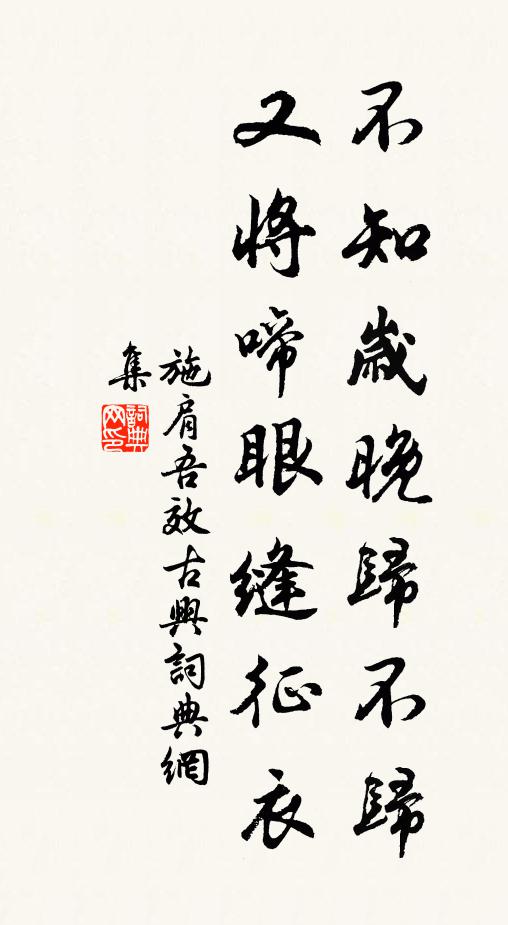 不知歲晚歸不歸
又將啼眼縫征衣
施肩吾效古興詞典網
集
詞典網印